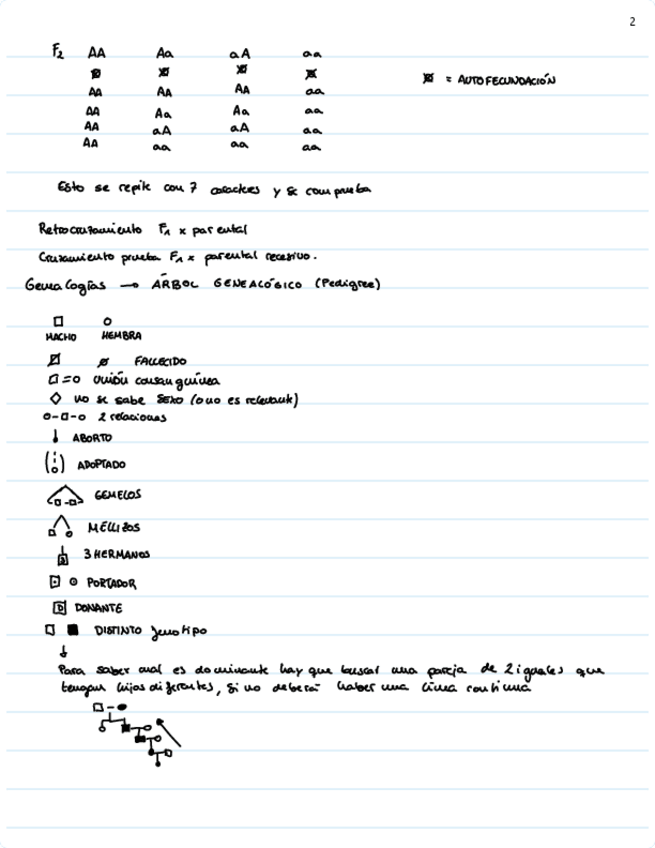 2
F2 AA Aa aA aa
= AUTOFECUNDACIÓN
AA AA AA aa
AA Aa Aa aa
AA aA aA aa
AA aa aa aa
Esto se repite con 7 caracteres y se comprueba
Retrocruzamiento F1 x parental
Cruzamiento prueba F1 x parental recesivo.
Genealogías → ÁRBOL GENEALÓGICO (Pedigree)
MACHO HEMBRA
FALLECIDO
unión consanguínea
no se sabe sexo (o no es relevante)
2 relaciones
ABORTO
ADOPTADO
GEMELOS
MELLIZOS
3 HERMANOS
PORTADOR
D DONANTE
DISTINTO fenotipo
Para saber cual es dominante hay que buscar una pareja de 2 iguales que
tengan hijos diferentes, si no deberá haber una línea continua